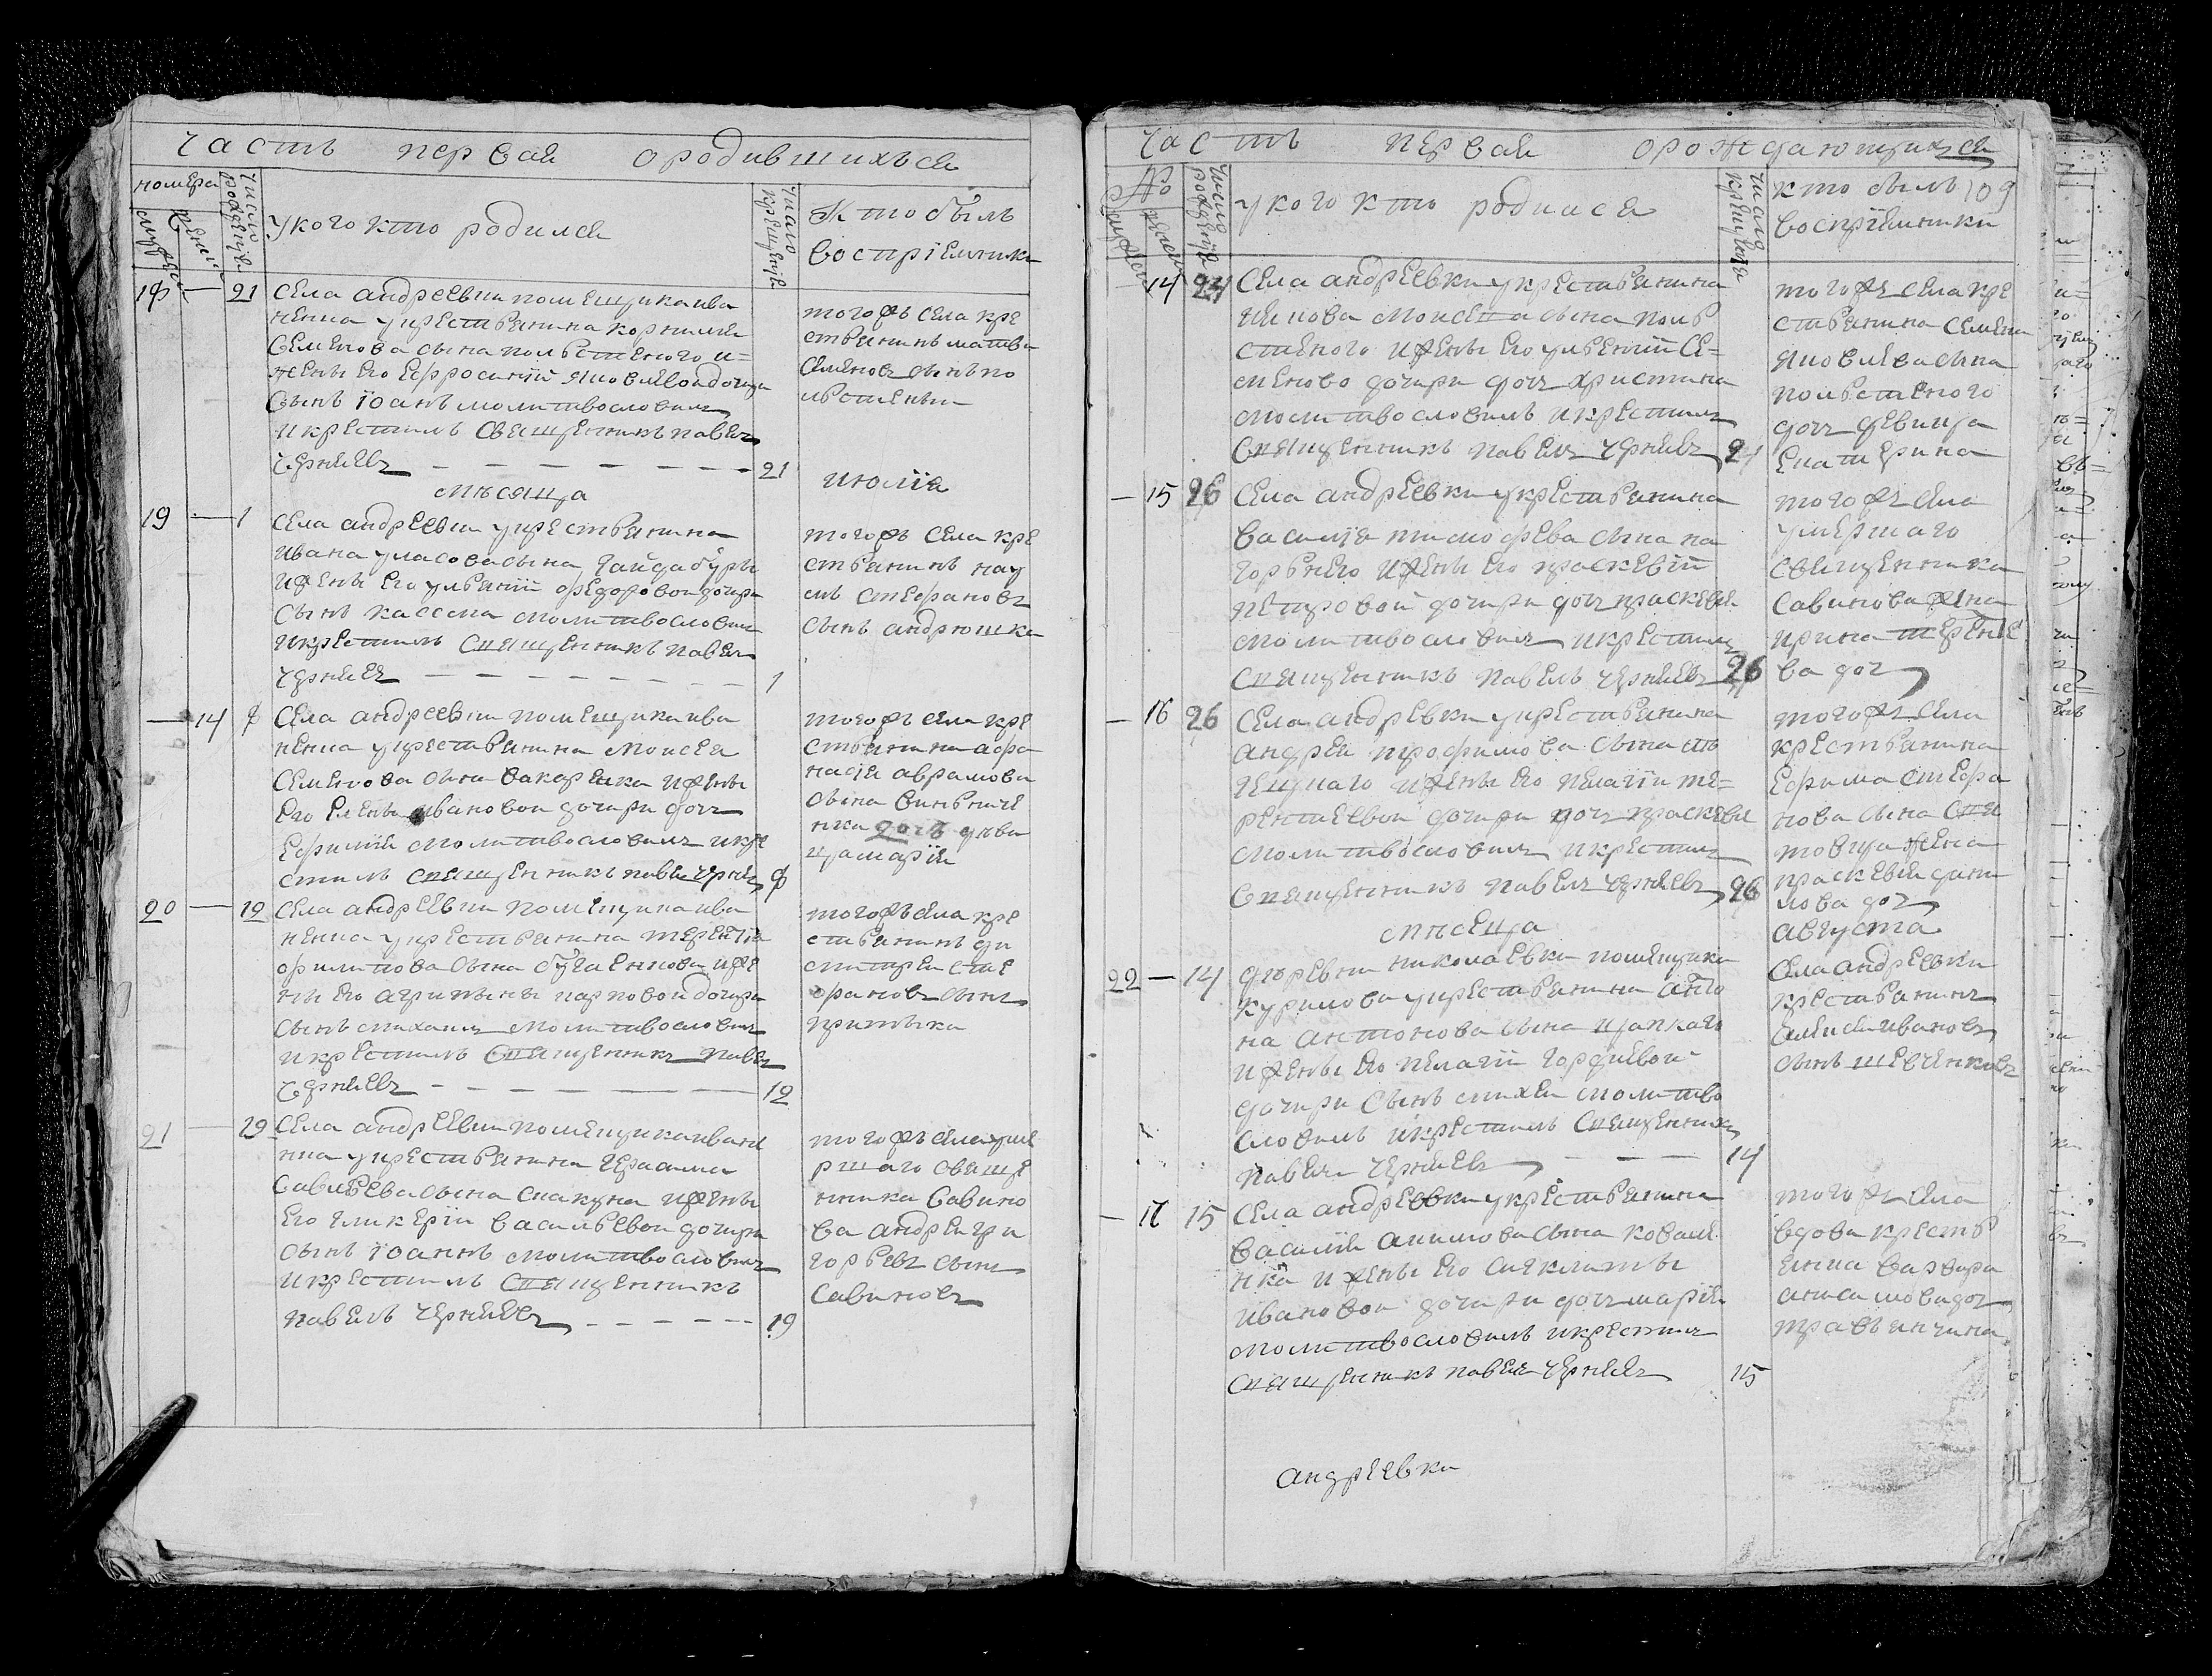 часть первая ородившихъся
номера
мужеск
женск
число рожденїя
укого кто родился
число крещенїя
Кто былъ
воспрїемники
18 — 21 Села андреевки помещика ива
ненка укрестьянина корнилия
Семенова сына полтстеного и=
жены Его Ефросинїи яковлевой дочери
Сынъ їоанъ молитвословилъ
икрестилъ Священникъ павелъ
черняевъ 21
тогожъ села кре
стьянинъ матвей
Семеновъ сынъ по
лтстеный
месяца июлїя
19 — 1 Села андреевки укрестьянина
ивана уласова сына гайдабуры
ижены Его ульянїи федоровой дочери
Сынъ касьма молитвословилъ
икрестилъ Священникъ павелъ
черняевъ 1
тогожъ Села кре
стьянинъ нау
мъ стефановъ
сынъ андрюшка
— 14 8 Села андреевки помещика ива
ненка укрестьянина моисея
Семенова сына Захаренка ижены
Его Елены ивановой дочери дочь
Ефимїя молитвословилъ икре
стилъ священникъ павелъ черняевъ 8
тогожъ села кре
стьянина афа
насїя аврамова
сына виньниче
нка дочь деви
ца марїя
20 — 12 Села андреевки помещика ива
ненка укрестьянина терентїя
филипова сына бугаенкова иже
ны Его агрипины карповой дочери
Сынъ михаилъ молитвословилъ
икрестилъ Священникъ павелъ
черняевъ 12
тогожъ села кре
стьянинъ ди
митрей сте
фановъ сынъ
притыка
21 — 19 Села андреевки помещика иване
нка укрестьянина герасима
Савельева сына скакуна ижены
Его гликерїи васильевой дочери
Сынъ їоаннъ молитвословилъ
икрестилъ Священникъ
павелъ черняевъ 19
тогожъ села уме
ршаго свяще
нника Савино
ва андрей гри
горьевъ сынъ
Савиновъ
часть первая орождающихся
№
мужеск
женск
число рожденїя
укого кто родился
число крещенїя
кто былъ 109
воспрїемники
14 24 Села андреевки укрестьянина
якова моисеева сына полт
стеного ижены Его ульянїи Се=
меново дочери дочь христина
молитвословилъ икрестилъ
Священникъ павелъ черняевъ 24
тогожъ села кре
стьянина семена
яковлева сына
полтстеного
дочь девица
Екатерина
— 15 26 Села андреевки укрестьянина
василїя тимофева сына на
горьнего ижены Его праскевїи
петровой дочери дочь праскевїя
молитвословилъ икрестилъ
Священникъ павелъ черняевъ 26
тогожъ села
умершаго
священника
Савинова жена
ирина теренте
ва дочь
— 16 26 Села андревки укрестьянина
андрея трофимова сына
ижены Его пелагїи те=
рентеевой дочери дочь праскевїя
молитвословилъ икрестилъ
Священникъ павелъ черняевъ 26
тогожъ села
крестьянина
Ефима стефа
нова сына
жена
праскевїя дани
лова дочь
месяца августа
22 — 14 деревни николаевки помещика
курилова укрестьянина анто
на антонова сына цапкаго
ижены Его пелагїи гордѣевой
дочери Сынъ михей молитво
словилъ икрестилъ Священникъ
павелъ черняевъ 14
Села андреевки
крестьянинъ
алексей ивановъ
сынъ шевченковъ
— 17 15 Села андреевки укрестьянина
василїя акимова сына ковале
нка ижены Его синклитты
ивановой дочери дочь марїя
молитвословилъ икрестилъ
священникъ павелъ черняевъ 15
тогожъ села
вдова крестъ
янка варвара
анисимова дочь
андреевки